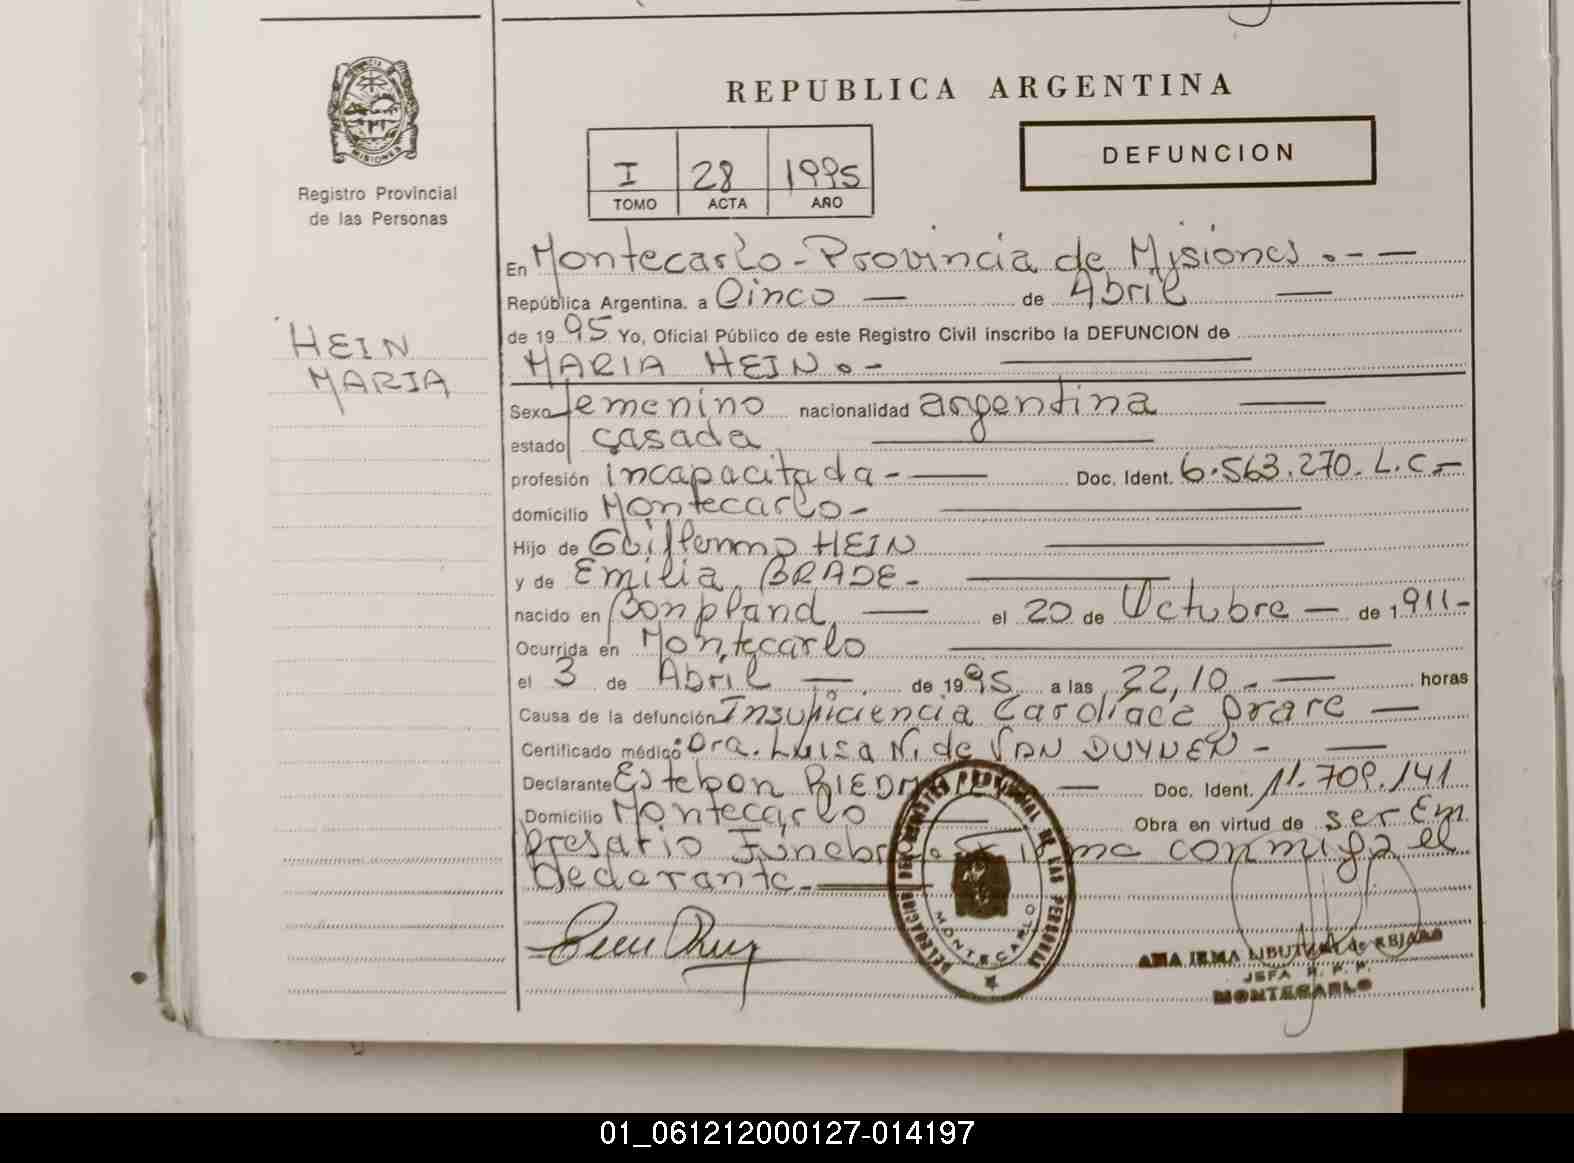 REPUBLICA ARGENTINA
MISIONES
Registro Provincial
de las Personas
I 28 1995
TOMO ACTA AÑO
DEFUNCION
HEIN
MARIA
En Montecarlo - Provincia de Misiones . - —
República Argentina. a Cinco — de Abril —
de 19 95 Yo, Oficial Público de este Registro Civil inscribo la DEFUNCION de
MARIA HEIN . -
Sexo femenino nacionalidad argentina —
estado casada —
profesión incapacitada - — Doc. Ident. 6.563.270. L.C. -
domicilio Montecarlo - —
Hijo de Guillermo HEIN —
y de Emilia BRADE - —
nacido en Bonpland — el 20 de Octubre — de 1911 -
Ocurrida en Montecarlo —
el 3 de Abril — de 1995 a las 22,10 - — horas
Causa de la defunción Insuficiencia Cardiace grave —
Certificado médico Dra. Luisa N. de VAN DUYNEN - —
Declarante Esteban — Doc. Ident. 11.709.141
Domicilio Montecarlo — Obra en virtud de ser Em
presario Funebre conmigo el
Declarante. -
DELEGACION DEL REGISTRO PROVINCIAL DE LAS PERSONAS
MONTECARLO
ANA IRMA de
JEFA R. P. P.
MONTECARLO
01_061212000127-014197